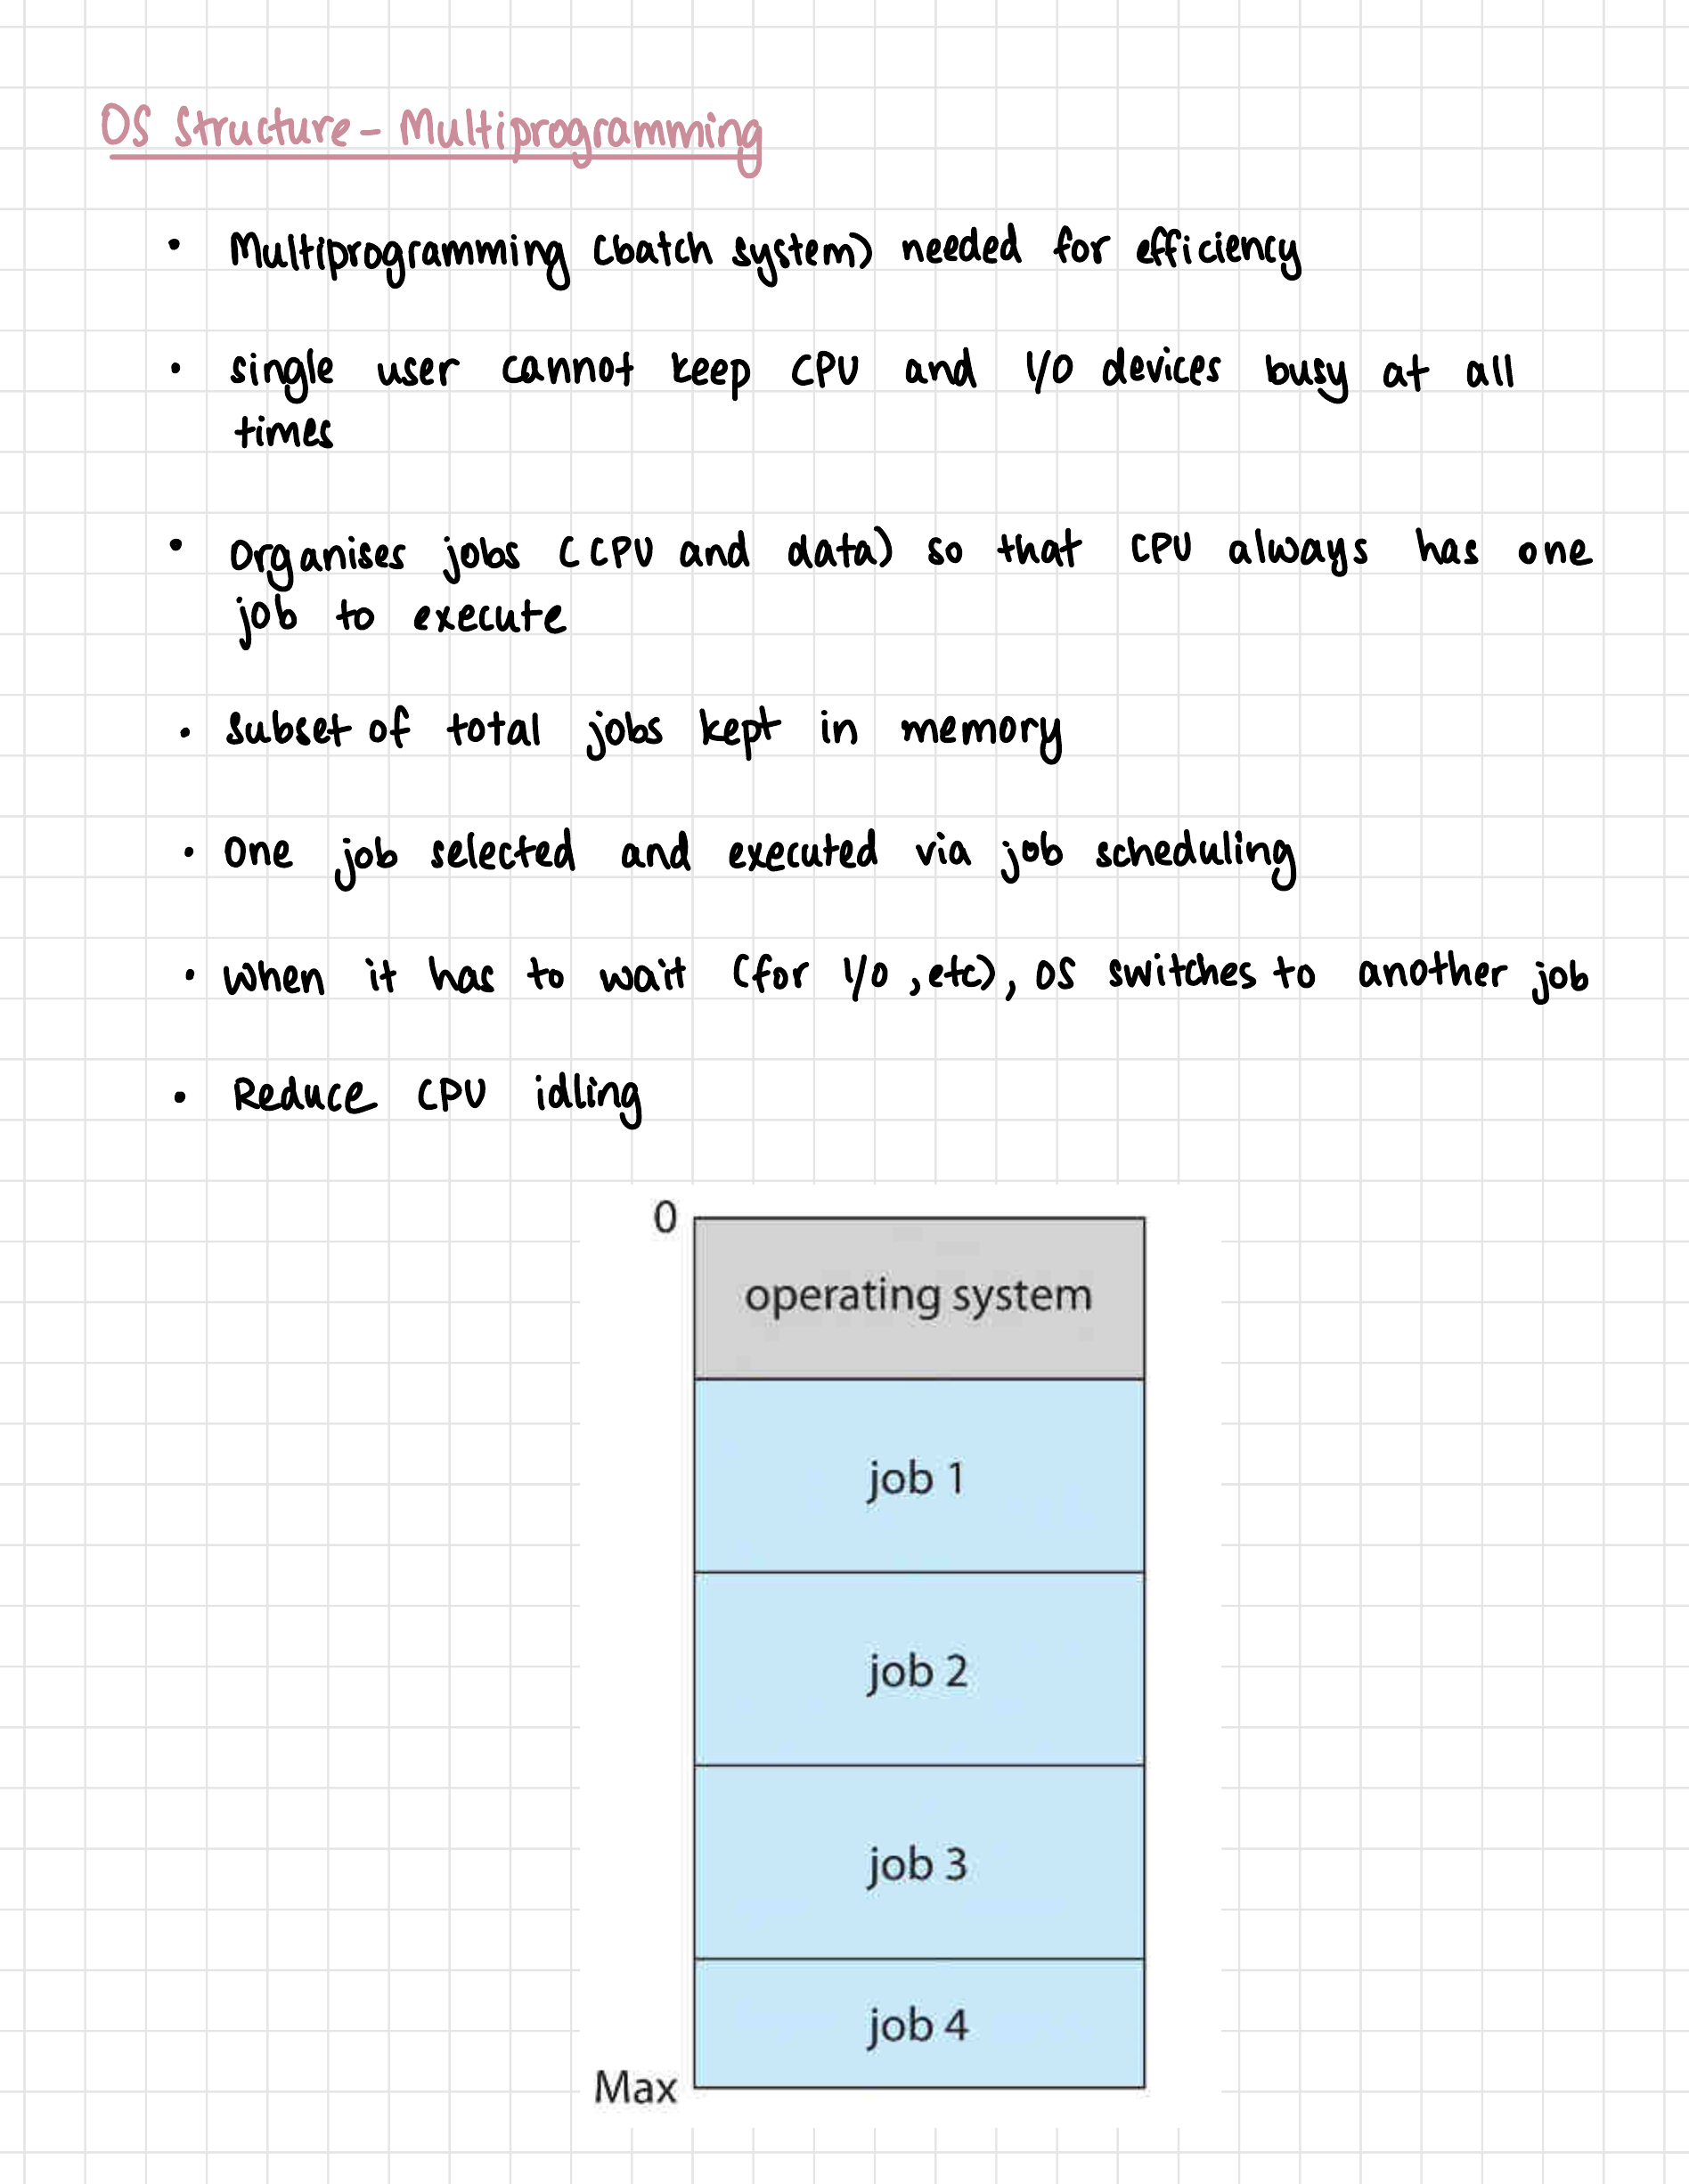 OS Structure - Multiprogramming
• Multiprogramming (batch system) needed for efficiency
• single user cannot keep CPU and I/O devices busy at all
times
• Organises jobs (CPU and data) so that CPU always has one
job to execute
• Subset of total jobs kept in memory
• One job selected and executed via job scheduling
• When it has to wait (for I/O, etc), OS switches to another job
• Reduce CPU idling
0
operating system
job 1
job 2
job 3
job 4
Max